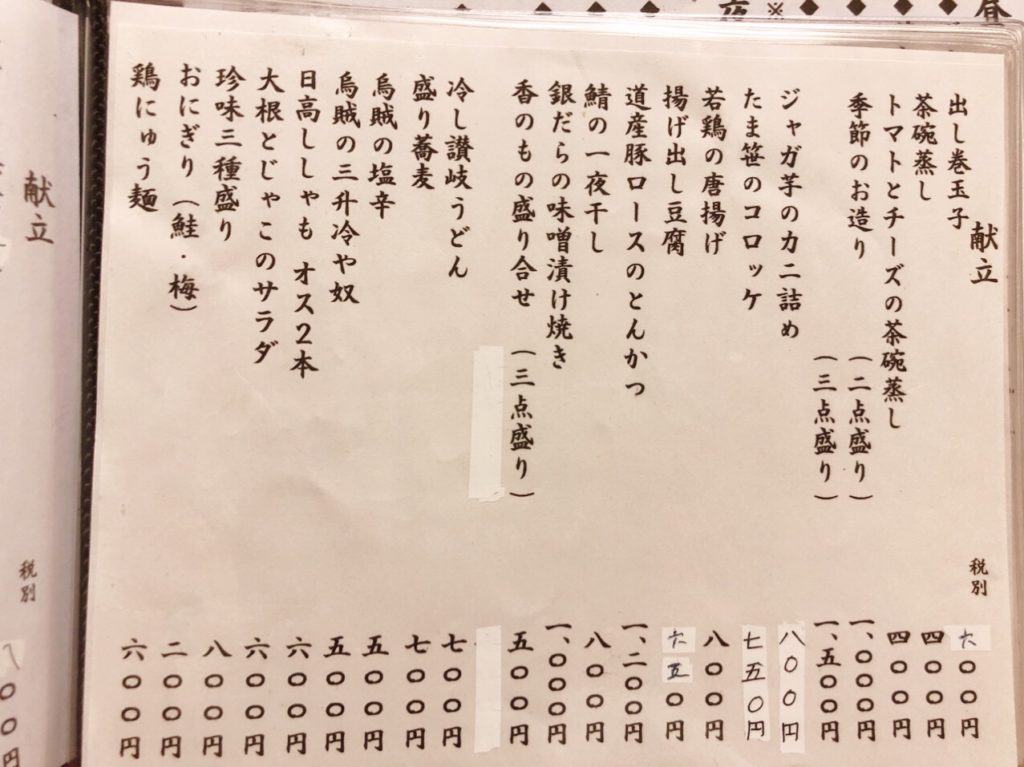 献立
税別
出し巻玉子 六〇〇円
茶碗蒸し 四〇〇円
トマトとチーズの茶碗蒸し 四〇〇円
季節のお造り (二点盛り) 一、〇〇〇円
(三点盛り) 一、五〇〇円
ジャガ芋のカニ詰め 八〇〇円
たま笹のコロッケ 七五〇円
若鶏の唐揚げ 八〇〇円
揚げ出し豆腐 六五〇円
道産豚ロースのとんかつ 一、二〇〇円
鯖の一夜干し 八〇〇円
銀だらの味噌漬け焼き 一、〇〇〇円
香のもの盛り合せ (三点盛り) 五〇〇円
冷し讃岐うどん 七〇〇円
盛り蕎麦 七〇〇円
烏賊の塩辛 五〇〇円
烏賊の三升冷や奴 五〇〇円
日高ししゃも オス2本 六〇〇円
大根とじゃこのサラダ 六〇〇円
珍味三種盛り 八〇〇円
おにぎり (鮭・梅) 二〇〇円
鶏にゅう麺 六〇〇円
献立
税別
八〇〇円